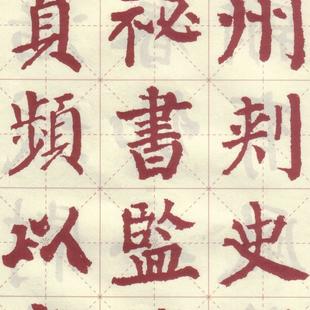 州刺史
祕書監
貞頻以